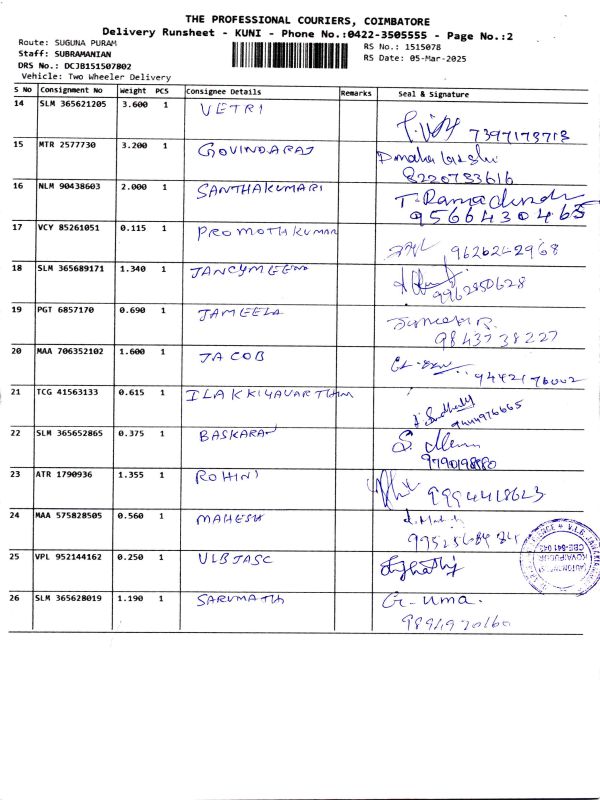 THE PROFESSIONAL COURIERS, COIMBATORE
Delivery Runsheet - KUNI - Phone No.:0422-3505555 - Page No.:2
Route: SUGUNA PURAM
RS No.: 1515078
Staff: SUBRAMANIAN
RS Date: 05-Mar-2025
DRS No.: DCJB151507802
Vehicle: Two Wheeler Delivery
S No Consignment No Weight PCS Consignee Details Remarks Seal & Signature
14 SLM 365621205 3.600 1 VETRI
7397173713
15 MTR 2577730 3.200 1 GOVINDARAJ
8220733616
16 NLM 90438603 2.000 1 SANTHAKUMARI T. Ramachandr
9566430465
17 VCY 85261051 0.115 1 PROMOTHKUMAR
9626242968
18 SLM 365689171 1.340 1
9962550628
19 PGT 6857170 0.690 1 JAMEELA
9843738227
20 MAA 706352102 1.600 1 JACOB
9442176002
21 TCG 41563133 0.615 1
9444976665
22 SLM 365652865 0.375 1 BASKARAN
23 ATR 1790936 1.355 1 ROHINI
9994418623
24 MAA 575828505 0.560 1 MAHESH
25 VPL 952144162 0.250 1 VLBJASC
26 SLM 365628019 1.190 1 G. Uma.
9894970160